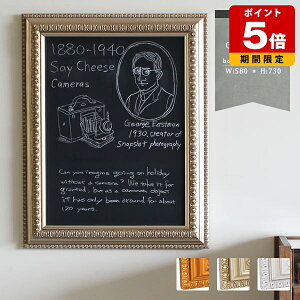 ポイント
5倍
期間限定
W:580 × H:730
1880-1940
Say Cheese
Cameras
George Eastman
1930, creator of
Snapshot photography
Can you imagine going on holiday
without a camera? We take it for
granted, but as a common object
it has only been around for about
120 years.